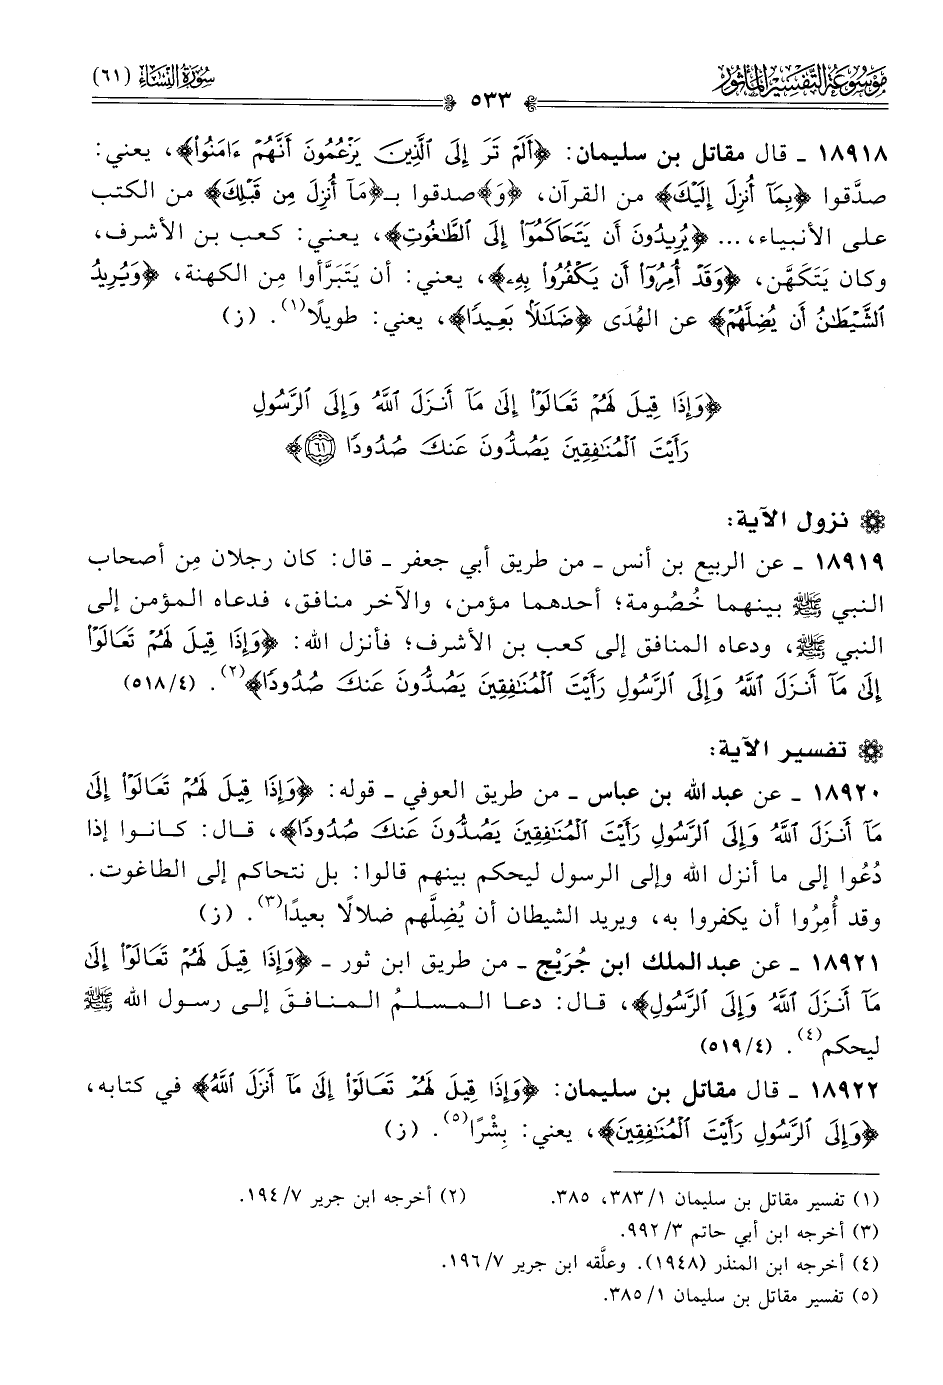 مَوْسُوعَة التَّفْسِير المَأْثُور
سُورَةُ النِّسَاءِ (٦١)
٥٣٣
١٨٩١٨ ـ قال مقاتل بن سليمان: ﴿أَلَمْ تَرَ إِلَى ٱلَّذِينَ يَزْعُمُونَ أَنَّهُمْ ءَامَنُوا۟﴾، يعني:
صدَّقوا ﴿بِمَآ أُنزِلَ إِلَيْكَ﴾ من القرآن، ﴿وَ﴾صدقوا بـ﴿مَآ أُنزِلَ مِن قَبْلِكَ﴾ من الكتب
على الأنبياء، ... ﴿يُرِيدُونَ أَن يَتَحَاكَمُوٓا۟ إِلَى ٱلطَّٰغُوتِ﴾، يعني: كعب بن الأشرف،
وكان يَتَكَهَّن، ﴿وَقَدْ أُمِرُوٓا۟ أَن يَكْفُرُوا۟ بِهِۦ﴾، يعني: أن يَتَبَرَّأوا مِن الكهنة، ﴿وَيُرِيدُ
ٱلشَّيْطَٰنُ أَن يُضِلَّهُمْ﴾ عن الهُدَى ﴿ضَلَٰلًۢا بَعِيدًا﴾، يعني: طويلًا(١). (ز)
﴿وَإِذَا قِيلَ لَهُمْ تَعَالَوْا۟ إِلَىٰ مَآ أَنزَلَ ٱللَّهُ وَإِلَى ٱلرَّسُولِ
رَأَيْتَ ٱلْمُنَٰفِقِينَ يَصُدُّونَ عَنكَ صُدُودًا ٦١﴾
نزول الآية:
١٨٩١٩ ـ عن الربيع بن أنس ـ من طريق أبي جعفر ـ قال: كان رجلان مِن أصحاب
النبي ﷺ بينهما خُصُومة؛ أحدهما مؤمن، والآخر منافق، فدعاه المؤمن إلى
النبي ﷺ، ودعاه المنافق إلى كعب بن الأشرف؛ فأنزل الله: ﴿وَإِذَا قِيلَ لَهُمْ تَعَالَوْا۟
إِلَىٰ مَآ أَنزَلَ ٱللَّهُ وَإِلَى ٱلرَّسُولِ رَأَيْتَ ٱلْمُنَٰفِقِينَ يَصُدُّونَ عَنكَ صُدُودًا﴾(٢). (٥١٨/٤)
تفسير الآية:
١٨٩٢٠ ـ عن عبد الله بن عباس ـ من طريق العوفي ـ قوله: ﴿وَإِذَا قِيلَ لَهُمْ تَعَالَوْا۟ إِلَىٰ
مَآ أَنزَلَ ٱللَّهُ وَإِلَى ٱلرَّسُولِ رَأَيْتَ ٱلْمُنَٰفِقِينَ يَصُدُّونَ عَنكَ صُدُودًا﴾، قال: كانوا إذا
دُعُوا إلى ما أنزل الله وإلى الرسول ليحكم بينهم قالوا: بل نتحاكم إلى الطاغوت.
وقد أُمِرُوا أن يكفروا به، ويريد الشيطان أن يُضِلَّهم ضلالًا بعيدًا(٣). (ز)
١٨٩٢١ ـ عن عبد الملك ابن جُرَيْج ـ من طريق ابن ثور ـ ﴿وَإِذَا قِيلَ لَهُمْ تَعَالَوْا۟ إِلَىٰ
مَآ أَنزَلَ ٱللَّهُ وَإِلَى ٱلرَّسُولِ﴾، قال: دعا المسلمُ المنافقَ إلى رسول الله ﷺ
ليحكم(٤). (٥١٩/٤)
١٨٩٢٢ ـ قال مقاتل بن سليمان: ﴿وَإِذَا قِيلَ لَهُمْ تَعَالَوْا۟ إِلَىٰ مَآ أَنزَلَ ٱللَّهُ﴾ في كتابه،
﴿وَإِلَى ٱلرَّسُولِ رَأَيْتَ ٱلْمُنَٰفِقِينَ﴾، يعني: بِشْرًا(٥). (ز)
(١) تفسير مقاتل بن سليمان ٣٨٣/١، ٣٨٥. (٢) أخرجه ابن جرير ١٩٤/٧.
(٣) أخرجه ابن أبي حاتم ٩٩٢/٣.
(٤) أخرجه ابن المنذر (١٩٤٨). وعلَّقه ابن جرير ١٩٦/٧.
(٥) تفسير مقاتل بن سليمان ٣٨٥/١.